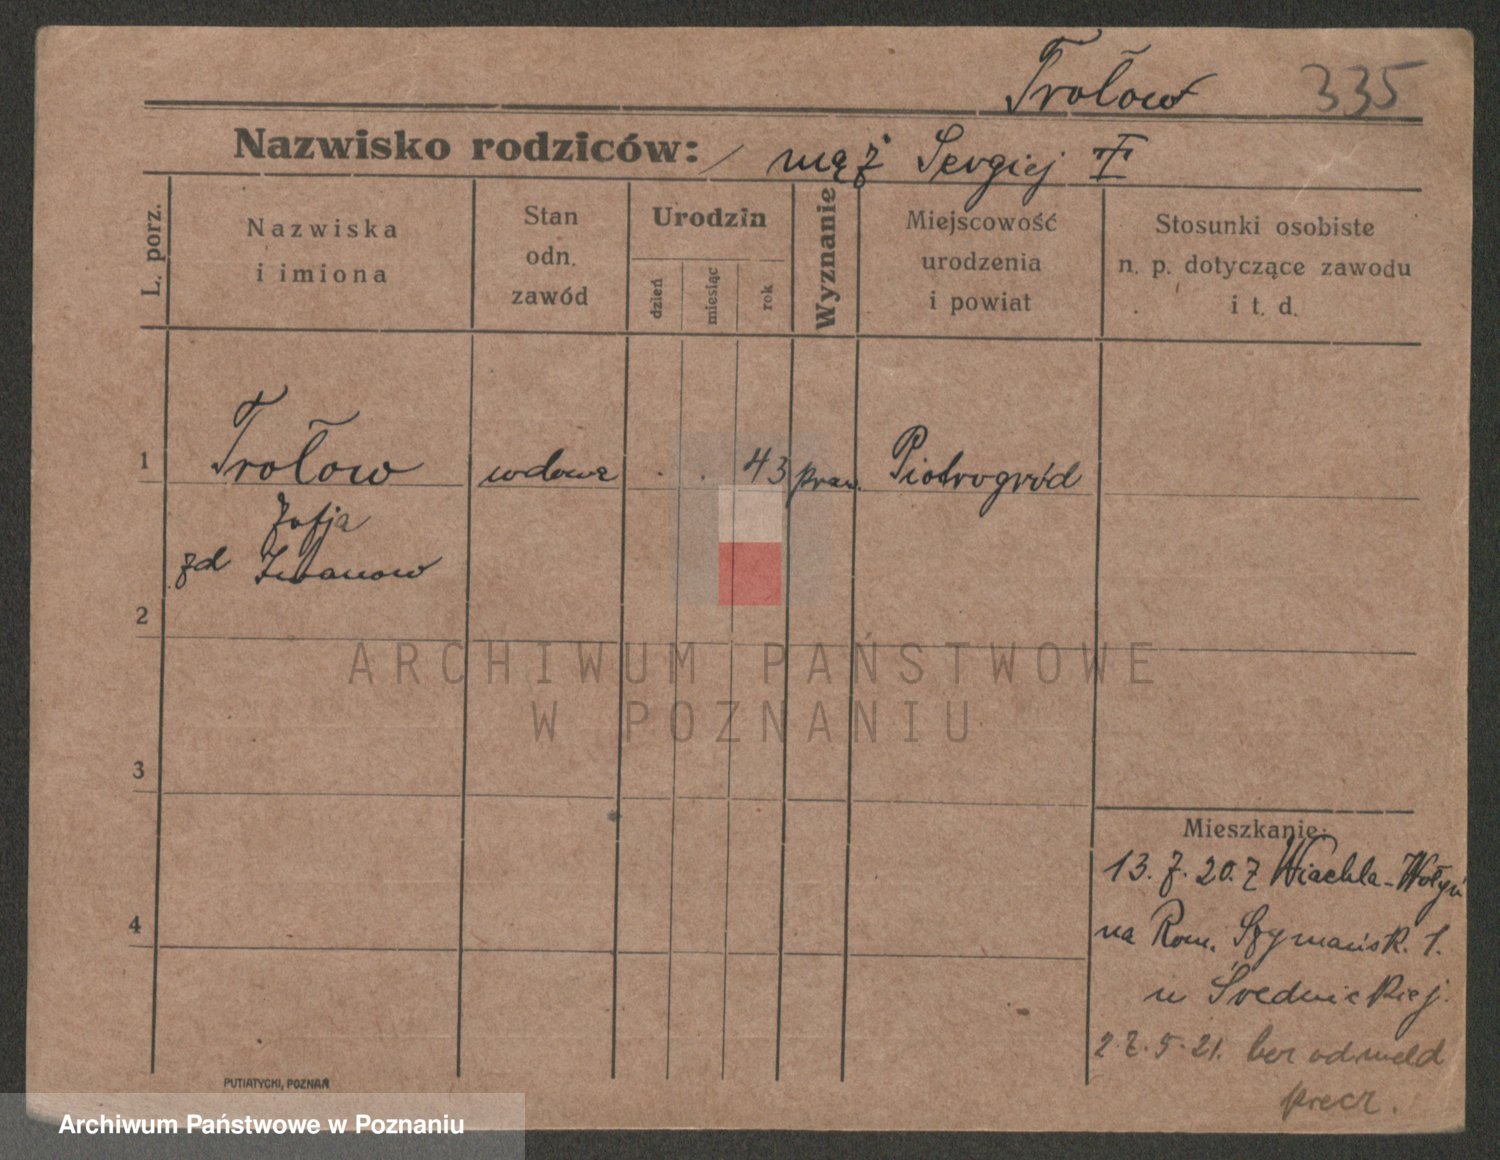 Trołow 335
Nazwisko rodziców: mąż Sergiej
L. porz.
Nazwiska
i imiona
Stan
odn.
zawód
Urodzin
dzień
miesiąc
rok
Wyznanie
Miejscowość
urodzenia
i powiat
Stosunki osobiste
n. p. dotyczące zawodu
i t. d.
1 Trołow wdowa . . 43 praw. Piotrogród
Zofja
zd Iwanow
2
3
4
ARCHIWUM PAŃSTWOWE
W POZNANIU
Mieszkanie:
13. 7. 20. z
na Rom. Szymańsk. 1.
u Średnickiej.
27. 5. 21. bez odmeld
precz.
PUTIATYCKI, POZNAŃ
Archiwum Państwowe w Poznaniu